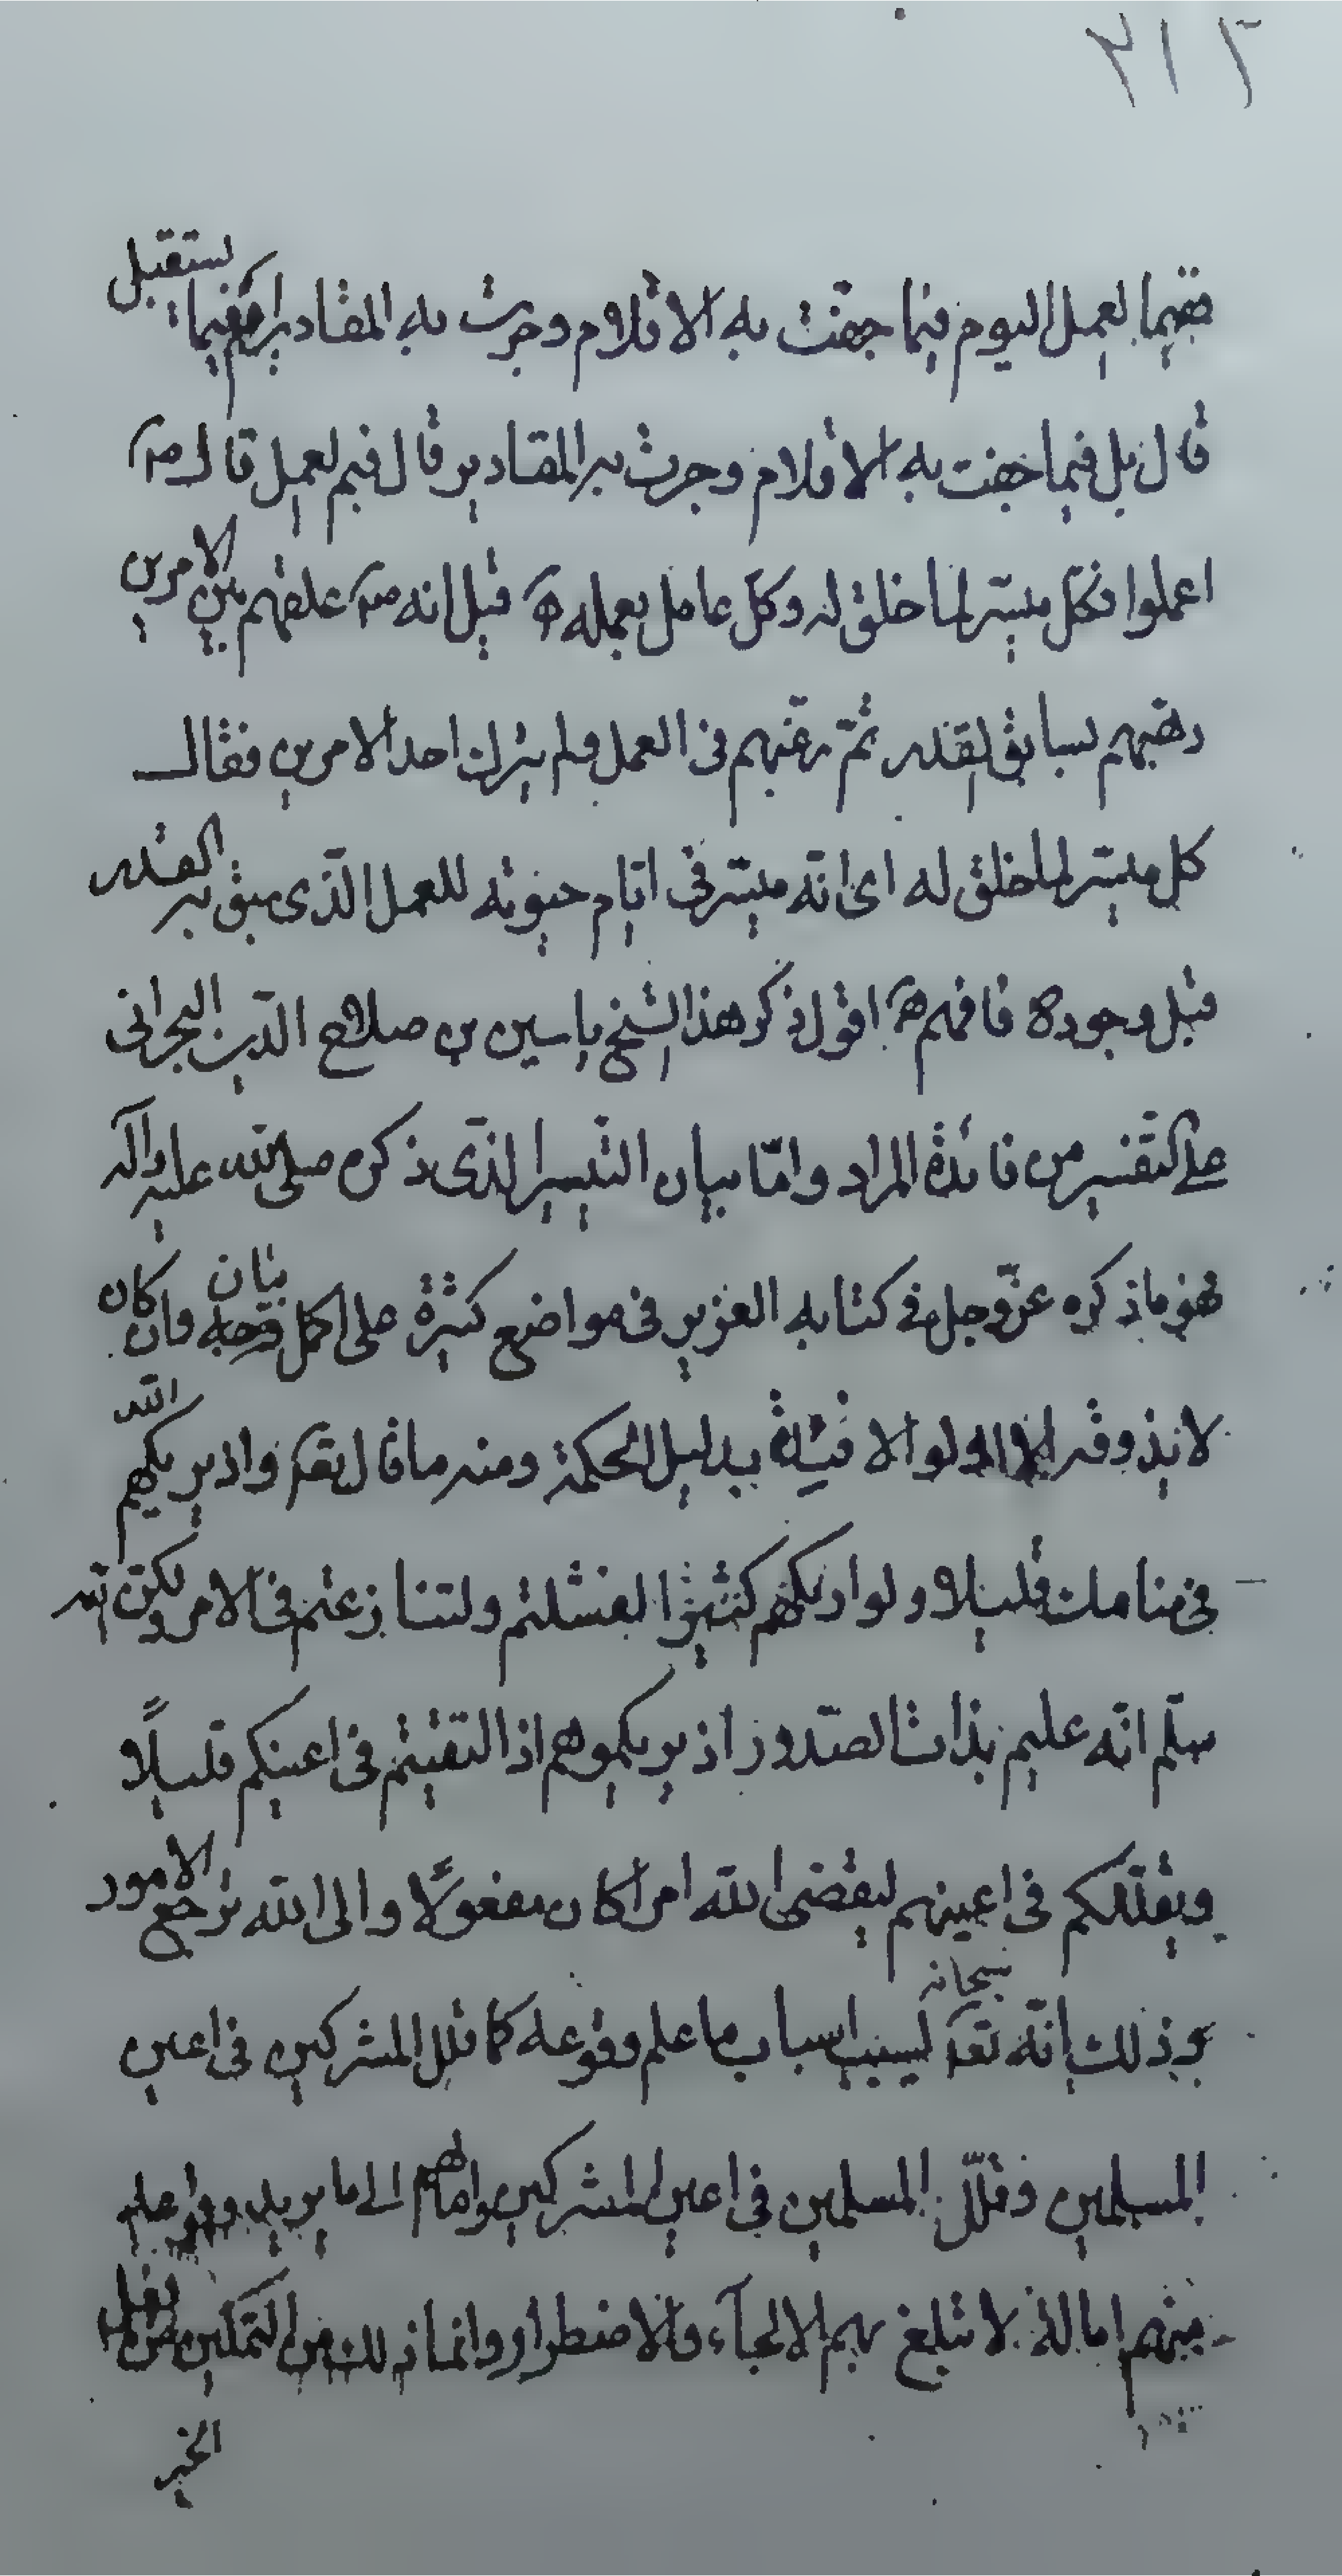 ٢١٢
ففيما لعمل اليوم فيما جفت به الاقلام وجرت به المقادير ام فيما يستقبل
قال بل فيما جفت به الاقلام وجرت به المقادير قال ففيم لعمل قال ص
اعملوا فكل ميسّر لما خلق له وكل عامل بعمله قيل انه ص علقهم بين الامرين
رهبهم بسابق القدر ثمّ رغّبهم في العمل ولم يترك احد الامرين فقال
كل ميسّر لما خلق له اى انّه ميسّر في ايّام حيوته للعمل الذّى سبق به القدر
قبل وجوده فافهم اقول ذكر هذا الشيخ ياسين بن صلاح الدّين البحرانى
على التفسير من فائدة المراد وامّا بيان التيسير الذّى ذكره صلى الله عليه وآله
فهو ما ذكره عزّ وجل في كتابه العزيز في مواضع كثيرة على اكمل بيان وان كان
لا يذوقه الا اولوا الافئدة بدليل الحكمة ومنه ما قال تعم واذ يريكهم الله
في منامك قليلا ولو اريكهم كثيرا لفشلتم ولتنازعتم في الامر ولكن الله
سلّم انّه عليم بذات الصّدور اذ يريكموهم اذ التقيتم في اعينكم قليلًا
ويقلّلكم في اعينهم ليقضى الله امرا كان مفعولًا والى الله ترجع الامور
وذلك انّه سبحانه تعم ليسبب اسباب ما علم وقوعه كما قلل المشركين في اعين
المسلمين وقلّل المسلمين في اعين المشركين وامالهم الى ما يريد وقوعه
منهم امالة لا تبلغ بهم الالجآء والاضطرار وانما ذلك من التمكين من فعل
الخير